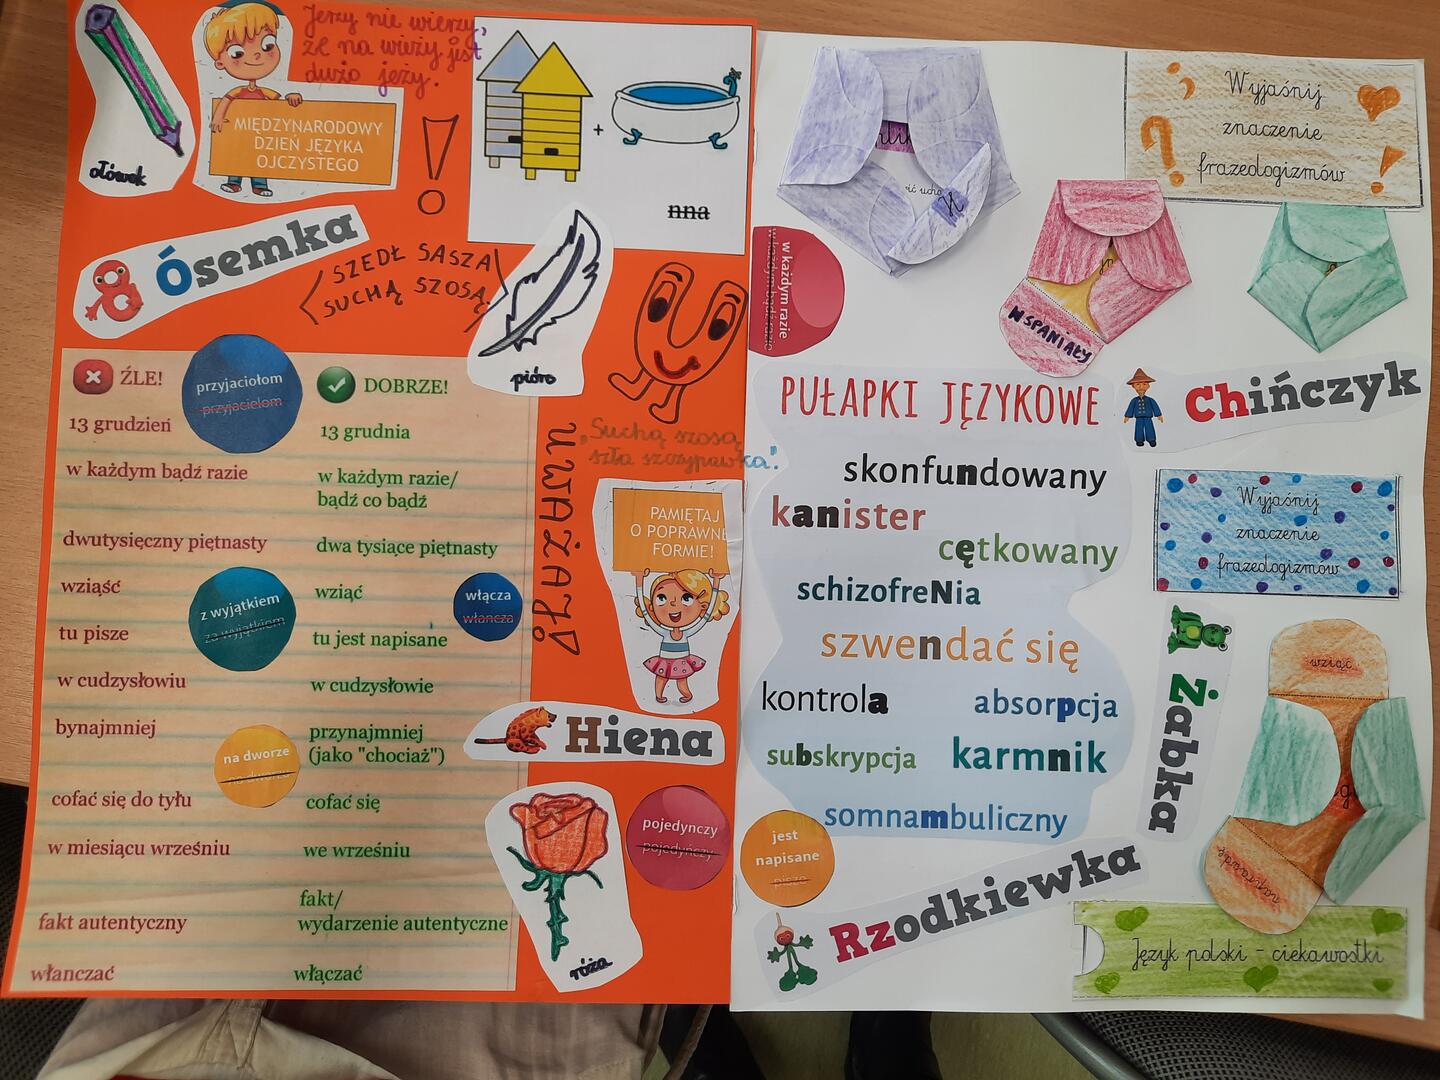 Jerzy nie wierzy,
że na wieży jest
dużo jeży.
ołówek
MIĘDZYNARODOWY
DZIEŃ JĘZYKA
OJCZYSTEGO
!
+
nna
Ósemka
SZEDŁ SASZA
SUCHĄ SZOSĄ.
pióro
ŹLE!
DOBRZE!
przyjaciołom
przyjacielom
13 grudzień
13 grudnia
w każdym bądź razie
w każdym razie/
bądź co bądź
dwutysięczny piętnasty
dwa tysiące piętnasty
wziąść
wziąć
z wyjątkiem
za wyjątkiem
tu pisze
tu jest napisane
w cudzysłowiu
w cudzysłowie
bynajmniej
przynajmniej
(jako "chociaż")
na dworze
cofać się do tyłu
cofać się
w miesiącu wrześniu
we wrześniu
fakt autentyczny
fakt/
wydarzenie autentyczne
włanczać
włączać
włącza
włancza
UWAŻAJ!
„Suchą szosą
szła szczypawka".
PAMIĘTAJ
O POPRAWNEJ
FORMIE!
Hiena
róża
pojedynczy
pojedyńczy
w każdym razie
w każdym bądź razie
Wyjaśnij
znaczenie
frazeologizmów
WSPANIAŁY
PUŁAPKI JĘZYKOWE
Chińczyk
skonfundowany
kanister
cętkowany
schizofreNia
szwendać się
kontrola
absorpcja
subskrypcja
karmnik
somnambuliczny
Wyjaśnij
znaczenie
frazeologizmów
Żabka
wziąć
naprawdę
jest
napisane
pisze
Rzodkiewka
Język polski - ciekawostki